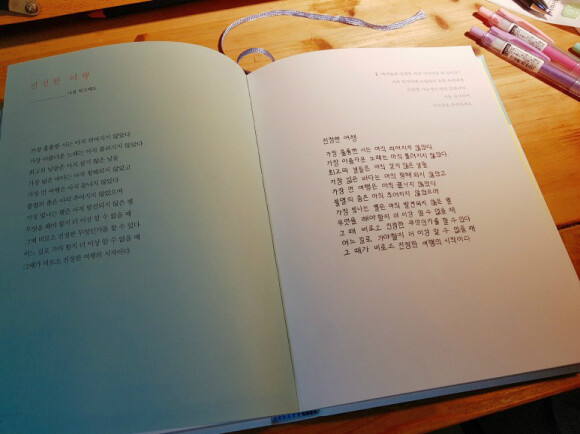 진정한 여행
나짐 히크메트
가장 훌륭한 시는 아직 쓰여지지 않았다
가장 아름다운 노래는 아직 불려지지 않았다
최고의 날들은 아직 살지 않은 날들
가장 넓은 바다는 아직 항해되지 않았고
가장 먼 여행은 아직 끝나지 않았다
불멸의 춤은 아직 추어지지 않았으며
가장 빛나는 별은 아직 발견되지 않은 별
무엇을 해야 할지 더 이상 알 수 없을 때
그때 비로소 진정한 무엇인가를 할 수 있다
어느 길로 가야 할지 더 이상 알 수 없을 때
그때가 비로소 진정한 여행의 시작이다
진정한 여행
가장 훌륭한 시는 아직 쓰여지지 않았다
가장 아름다운 노래는 아직 불려지지 않았다
최고의 날들은 아직 살지 않은 날들
가장 넓은 바다는 아직 항해 되지 않았고
가장 먼 여행은 아직 끝나지 않았다
불멸의 춤은 아직 추어지지 않았으며
가장 빛나는 별은 아직 발견되지 않은 별
무엇을 해야할지 더 이상 알 수 없을 때
그 때 비로소 진정한 무엇인가를 할 수 있다
어느 길로 가야할지 더 이상 알 수 없을 때
그 때가 비로소 진정한 여행의 시작이다